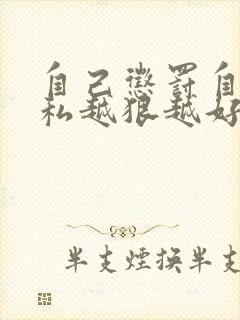 自己懲罰自
私越狠越好
半支煙換半支